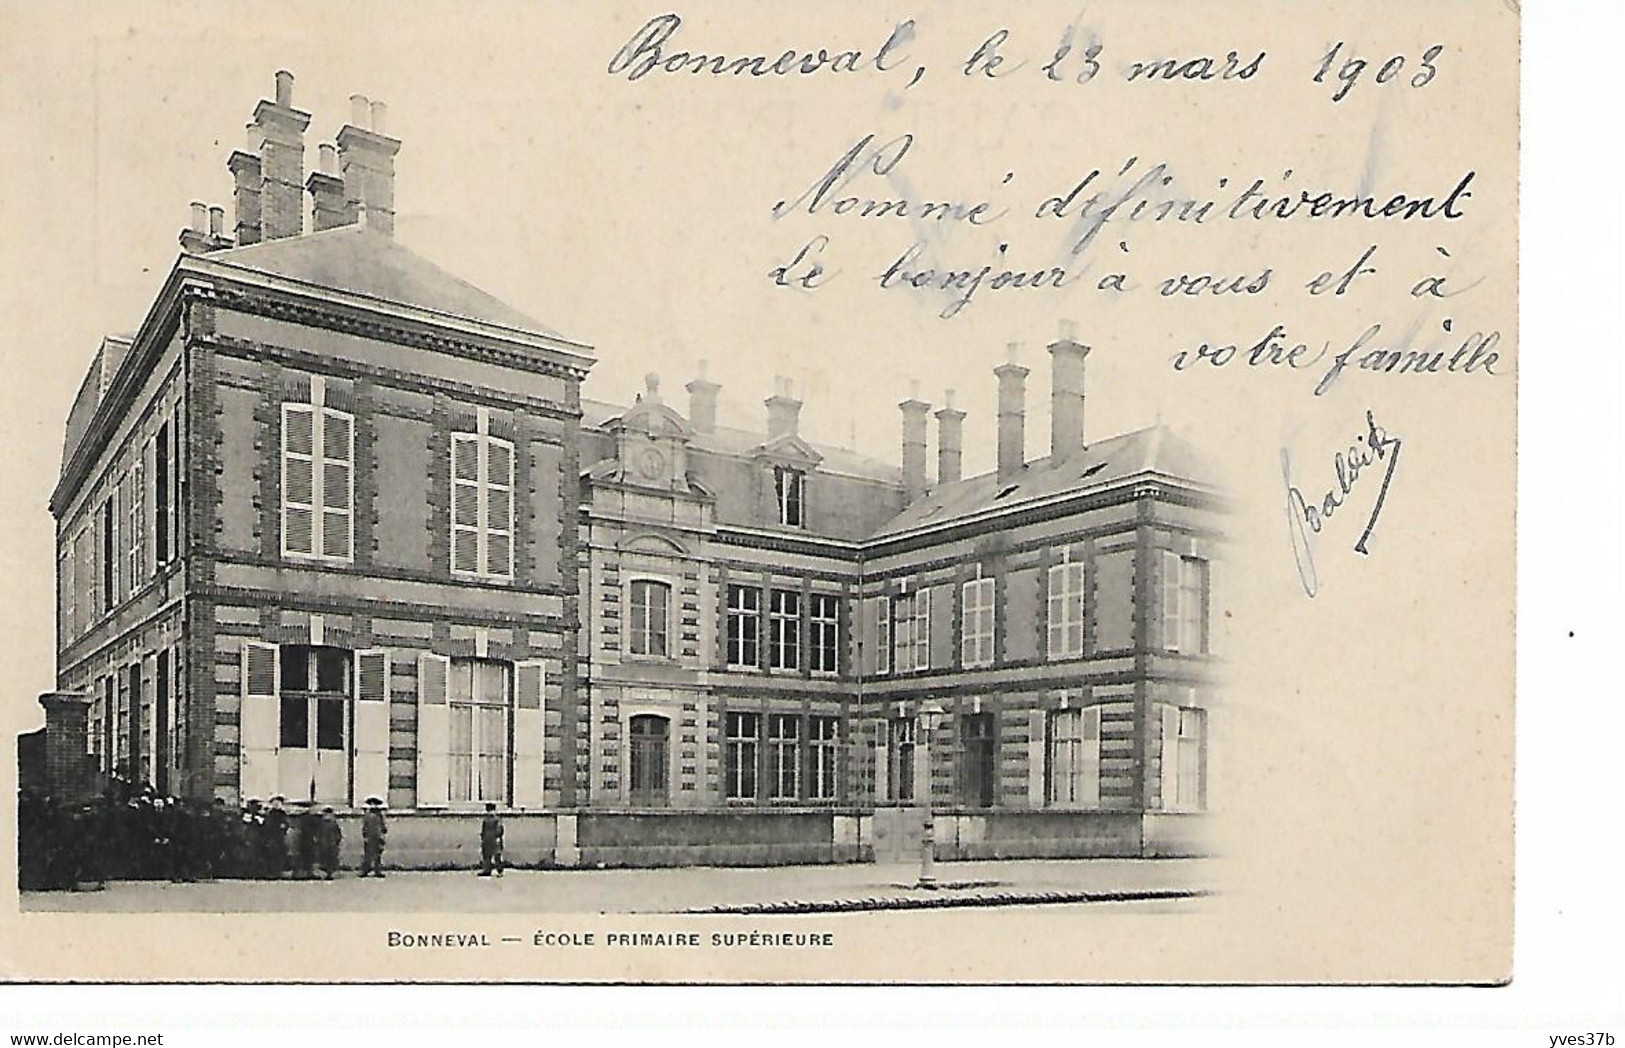 Bonneval, le 23 mars 1903
Nommé définitivement
Le bonjour à vous et à
votre famille
BONNEVAL — ÉCOLE PRIMAIRE SUPÉRIEURE
yves37b